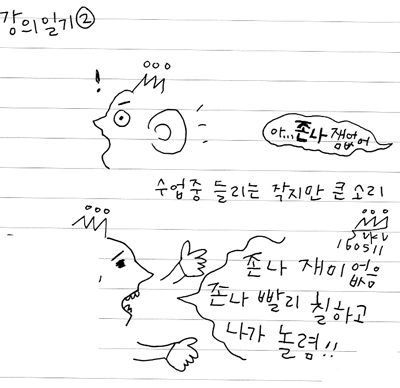 강의일기②
!
아... 존나 잼없어
수업중 들리는 작지만 큰 소리
160511
존나 재미없음
존나 빨리 칠하고
나가 놀렴!!